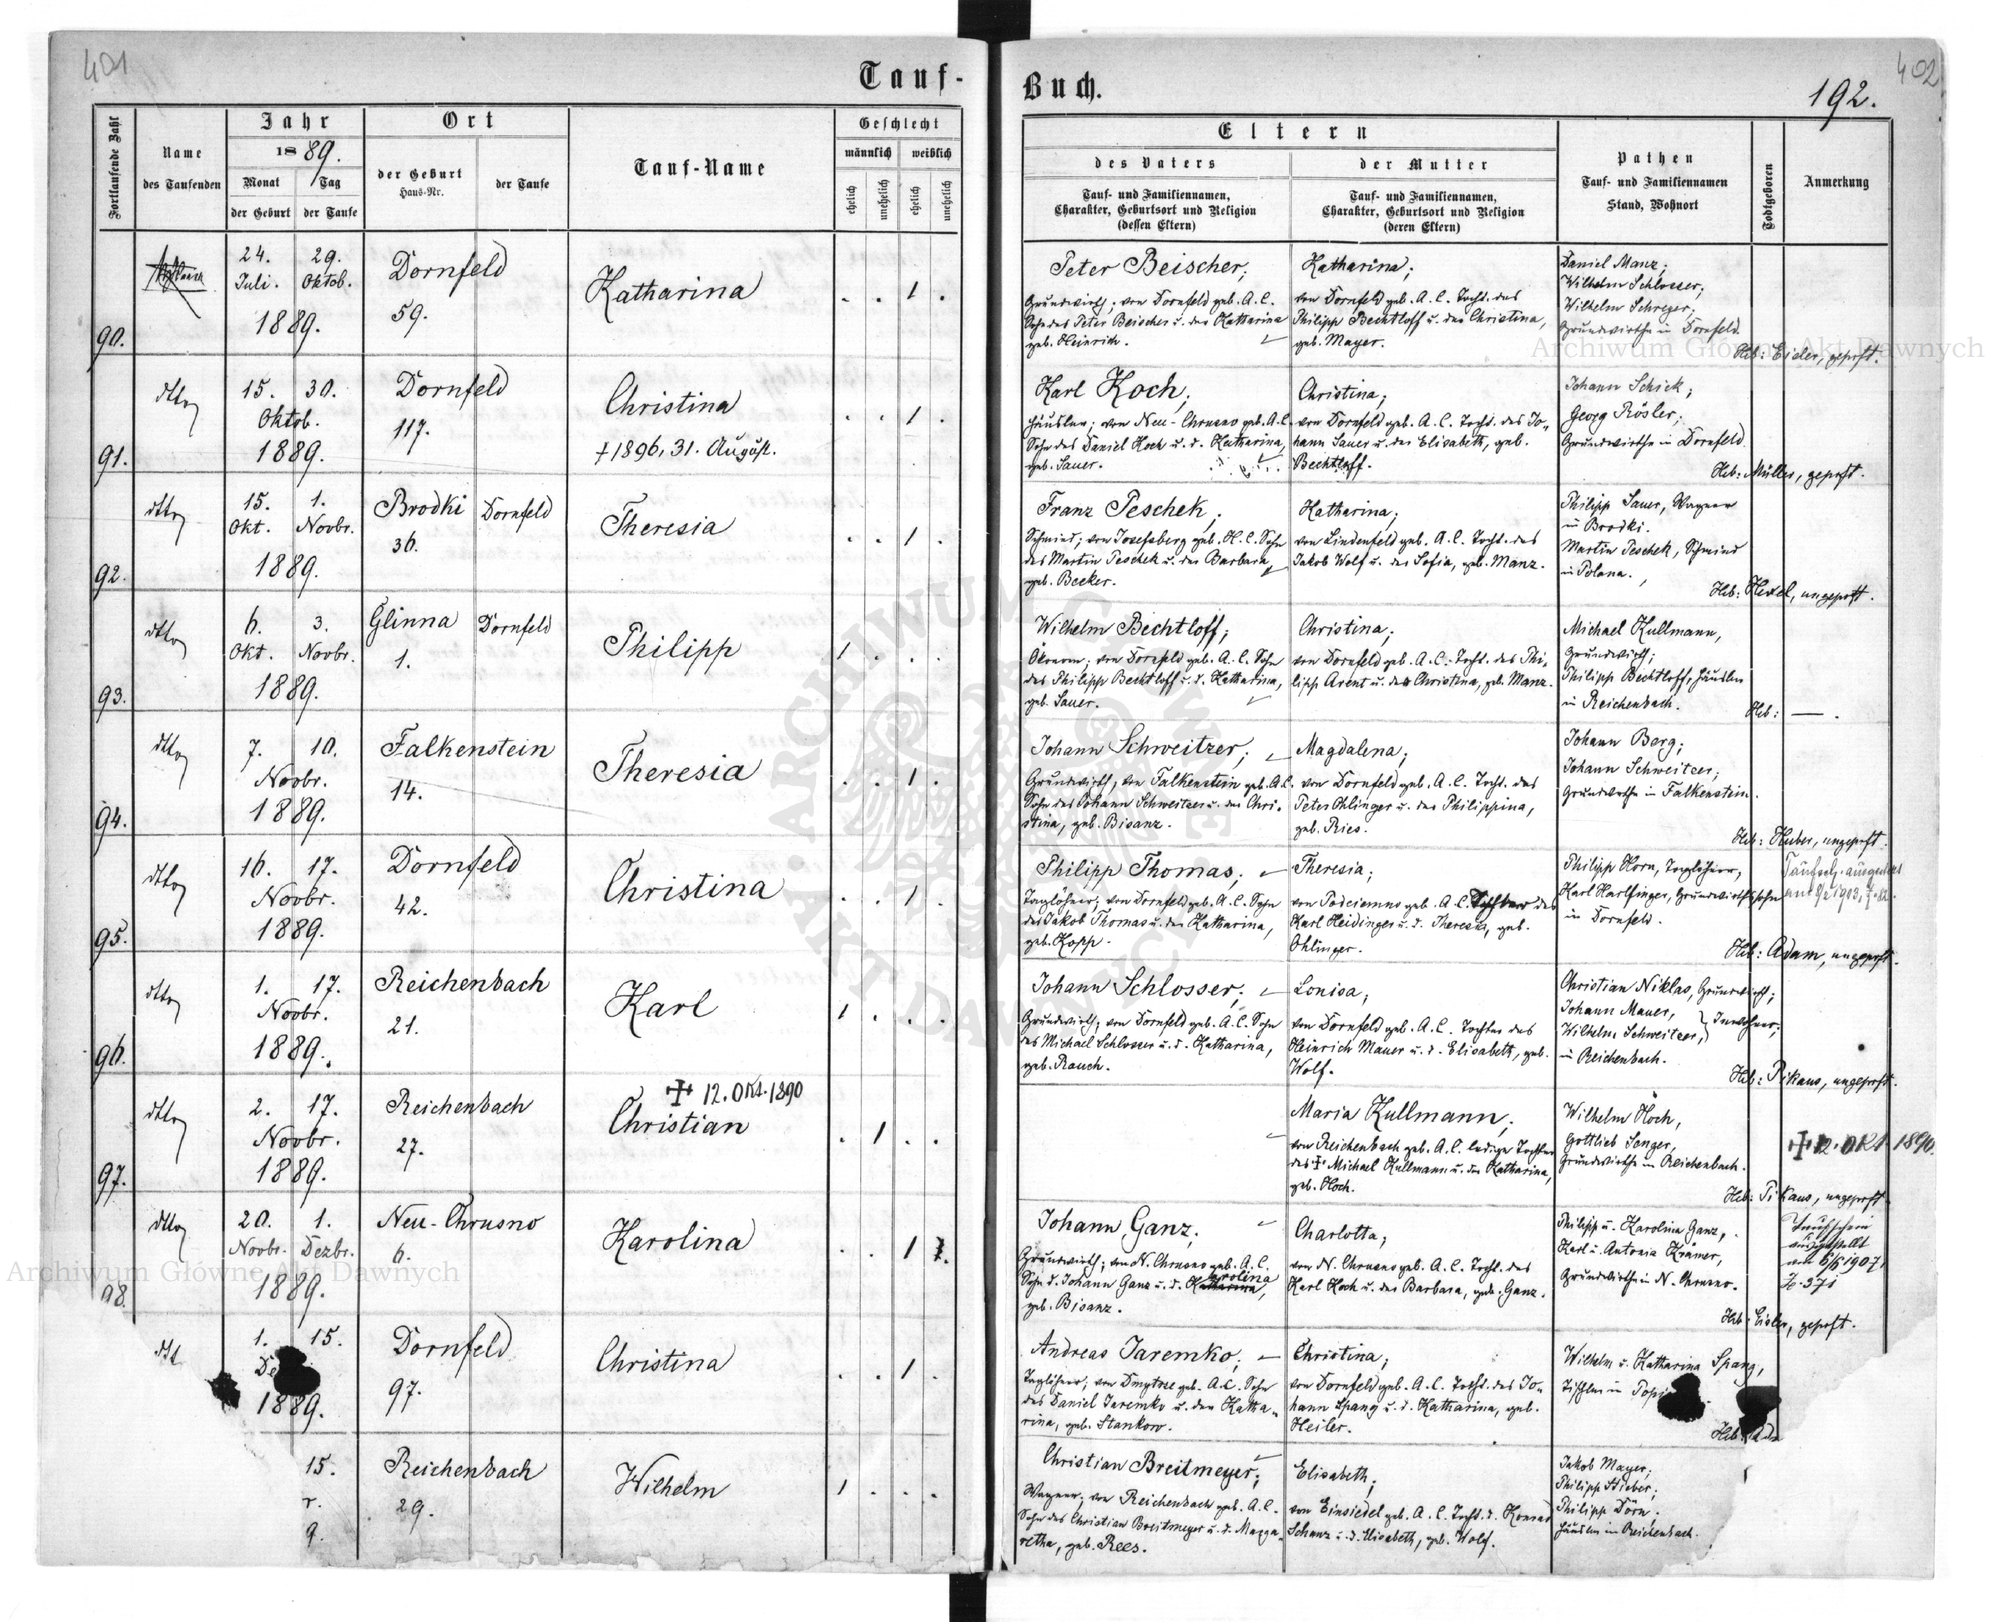 401
402
192.
Tauf-
Buch.
Fortlaufende Zahl
Name
des Taufenden
Jahr
1889.
Monat
Tag
der Geburt
der Taufe
Ort
der Geburt
Haus-Nr.
der Taufe
Tauf-Name
Geschlecht
männlich
weiblich
ehelich
unehelich
ehelich
unehelich
Eltern
des Vaters
Tauf- und Familiennamen,
Charakter, Geburtsort und Religion
(dessen Eltern)
der Mutter
Tauf- und Familiennamen,
Charakter, Geburtsort und Religion
(deren Eltern)
Pathen
Tauf- und Familiennamen
Stand, Wohnort
Todtgeboren
Anmerkung
90.
24. 29.
Juli. Oktob.
1889.
Dornfeld
59.
Katharina
. . 1 .
Peter Beischer;
Grundwirth; von Dornfeld geb. A. C.
Sohn des Peter Beischer u. der Katharina
geb. Heinrich.
Katharina;
von Dornfeld geb. A. C. Tocht. des
Philipp Bechtloff u. der Christina,
geb. Mayer.
Daniel Manz;
Wilhelm Schlosser;
Wilhelm Schreyer;
Grundwirthe in Dornfeld.
Heb: Eider, geprft.
91.
dtto
15. 30.
Oktob.
1889.
Dornfeld
117.
Christina
+ 1896, 31. August.
. . 1 .
Karl Koch;
Häusler; von Neu-Chrusno geb. A. C.
Sohn des Daniel Koch u. d. Katharina,
geb. Sauer.
Christina;
von Dornfeld geb. A. C. Tocht. des Jo-
hann Sauer u. der Elisabeth, geb.
Bechtloff.
Johann Schick;
Georg Rösler;
Grundwirthe in Dornfeld.
Heb: Müller, geprft.
92.
dtto
15. 1.
Okt. Novbr.
1889.
Brodki Dornfeld
36.
Theresia
. . 1 .
Franz Peschek;
Schmied; von Josefsberg geb. H. C. Sohn
des Martin Peschek u. der Barbara,
geb. Becker.
Katharina;
von Lindenfeld geb. A. C. Tocht. des
Jakob Wolf u. der Sofia, geb. Manz.
Philipp Sauer, Wagner
in Brodki.
Martin Peschek, Schmied
in Polana.
Heb: Hexel, ungeprft.
93.
dtto
6. 3.
Okt. Novbr.
1889.
Glinna Dornfeld
1.
Philipp
1 . . .
Wilhelm Bechtloff;
Ökonom; von Dornfeld geb. A. C. Sohn
des Philipp Bechtloff u. d. Katharina,
geb. Sauer.
Christina;
von Dornfeld geb. A. C. Tocht. des Phi-
lipp Arent u. der Christina, geb. Manz.
Michael Kullmann,
Grundwirth;
Philipp Bechtloff, Häusler
in Reichenbach.
Heb: — .
94.
dtto
7. 10.
Novbr.
1889.
Falkenstein
14.
Theresia
. . 1 .
Johann Schweitzer;
Grundwirth; von Falkenstein geb. A. C.
Sohn des Johann Schweitzer u. der Chri-
stina, geb. Bisanz.
Magdalena;
von Dornfeld geb. A. C. Tocht. des
Peter Ohlinger u. der Philippina,
geb. Ries.
Johann Berg;
Johann Schweitzer;
Grundwirthe in Falkenstein.
Heb: Huber, ungeprft.
95.
dtto
16. 17.
Novbr.
1889.
Dornfeld
42.
Christina
. . 1 .
Philipp Thomas;
Taglöhner; von Dornfeld geb. A. C. Sohn
des Jakob Thomas u. der Katharina,
geb. Kopp.
Theresia;
von Podciemno geb. A. C. Tochter des
Karl Heidinger u. d. Theresia, geb.
Ohlinger.
Philipp Horn, Taglöhner,
Karl Harlfinger, Grundwirthssohn
in Dornfeld.
Heb: Adam, ungeprft.
96.
dtto
1. 17.
Novbr.
1889.
Reichenbach
21.
Karl
1 . . .
Johann Schlosser;
Grundwirth; von Dornfeld geb. A. C. Sohn
des Michael Schlosser u. d. Katharina,
geb. Rauch.
Louisa;
von Dornfeld geb. A. C. Tochter des
Heinrich Mauer u. d. Elisabeth, geb.
Wolf.
Christian Niklas, Grundwirth;
Johann Mauer,
Wilhelm Schweitzer, } Inwohner;
in Reichenbach.
Heb: Pikaus, ungeprft.
97.
dtto
2. 17.
Novbr.
1889.
Reichenbach
27.
+ 12. Okt. 1890
Christian
. 1 . .
Maria Kullmann;
von Reichenbach geb. A. C. ledige Tochter
des + Michael Kullmann u. der Katharina,
geb. Koch.
Wilhelm Koch,
Gottlieb Senger,
Grundwirthe in Reichenbach.
Heb: Pikaus, ungeprft.
+ 12. Okt. 1890.
98.
dtto
20. 1.
Novbr. Dezbr.
1889.
Neu-Chrusno
6.
Karolina
. . 1 .
Johann Ganz;
Grundwirth; von N. Chrusno geb. A. C.
Sohn d. Johann Ganz u. d. Karolina,
geb. Bisanz.
Charlotta;
von N. Chrusno geb. A. C. Tocht. des
Karl Koch u. der Barbara, geb. Ganz.
Philipp u. Karolina Ganz,
Karl u. Antonia Krämer,
Grundwirthe in N. Chrusno.
Heb: Eisler, geprft.
Taufschein
ausgestellt
1907
Z. 371
1. 15.
De
1889.
Dornfeld
97.
Christina
. . 1 .
Andreas Jaremko;
Taglöhner; von Dmytrze geb. A. C. Sohn
des Daniel Jaremko u. der Katha-
rina, geb. Stankow.
Christina;
von Dornfeld geb. A. C. Tocht. des Jo-
hann Spang u. d. Katharina, geb.
Heiler.
Wilhelm u. Katharina Spang,
Tischler in
Heb:
15.
r.
9.
Reichenbach
29.
Wilhelm
1 . . .
Christian Breitmeyer;
Wagner; von Reichenbach geb. A. C.
Sohn des Christian Breitmeyer u. d. Marga-
retha, geb. Rees.
Elisabeth;
von Einsiedel geb. A. C. Tocht. d. Konrad
Schanz u. d. Elisabeth, geb. Wolf.
Jakob Mayer;
Philipp Stieber;
Philipp Dörn.
Häusler in Reichenbach.
Archiwum Główne Akt Dawnych
Archiwum Główne Akt Dawnych